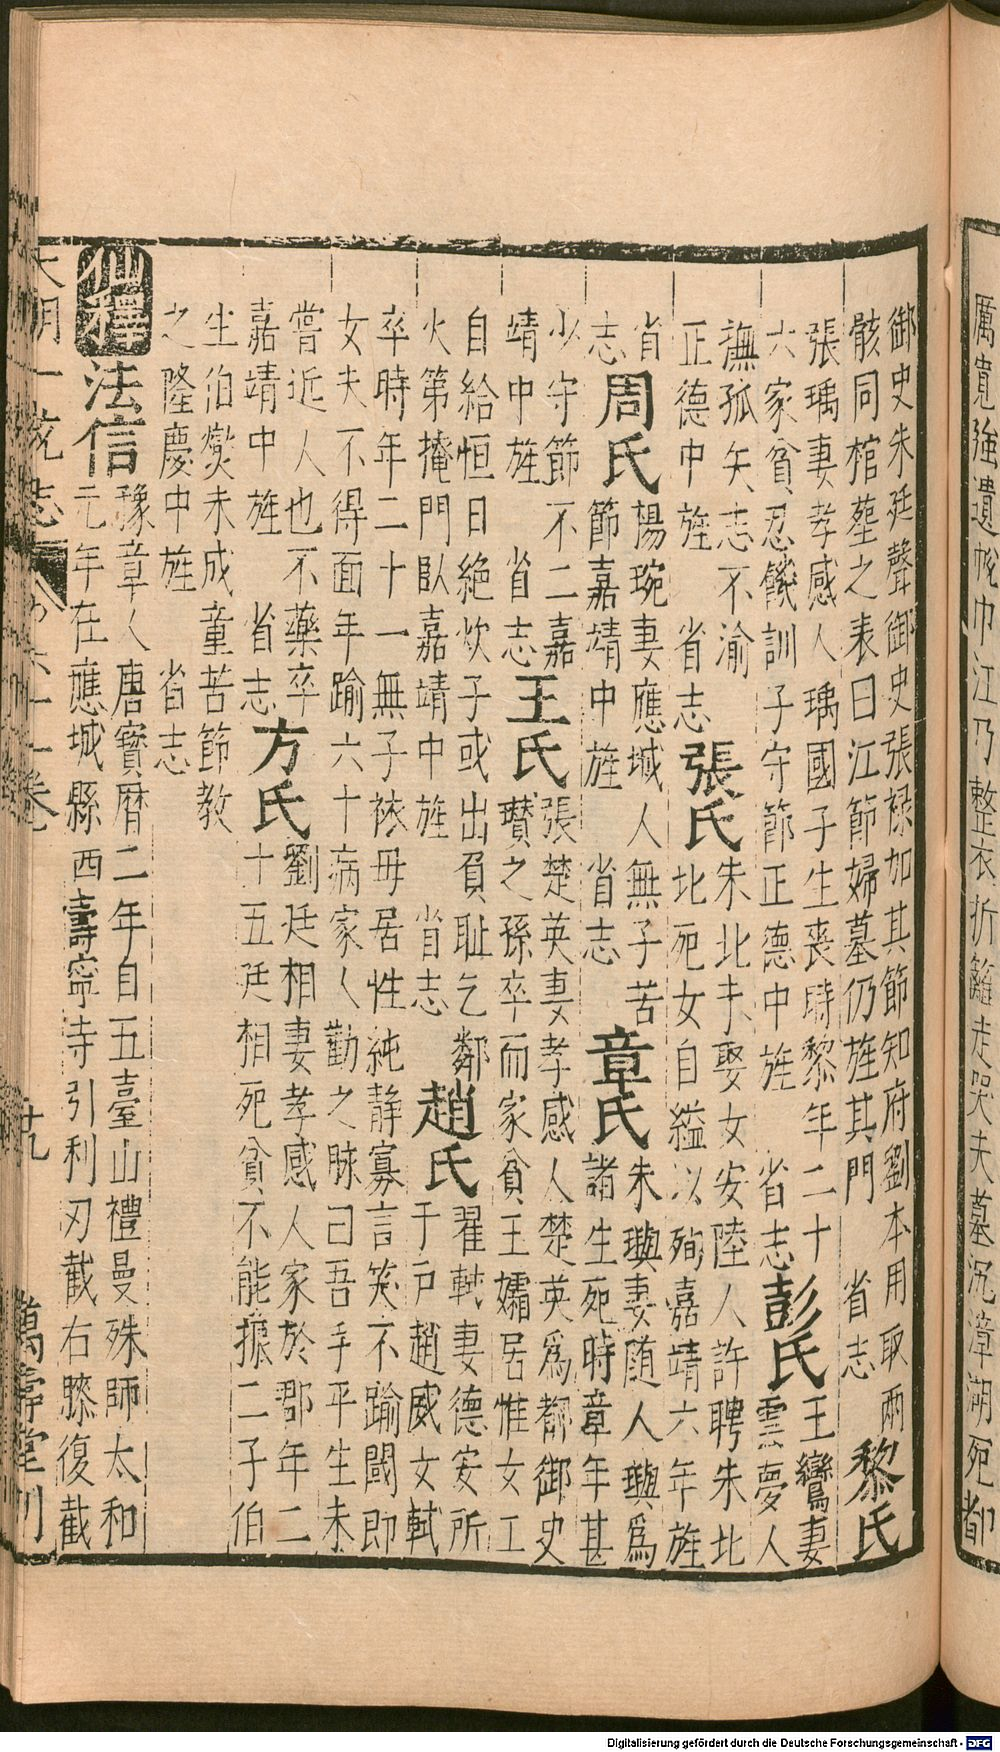 厲寬強遺㡌巾江乃整衣折籬走哭夫墓沉漳湖死都
御史朱廷聲御史張祿加其節知府劉本用取兩
骸同棺塟之表曰江節婦墓仍旌其門 省志 黎氏
張瑀妻孝感人瑀國子生喪時黎年二十
六家貧忍饑訓子守節正德中旌 省志 彭氏 王鸞妻
雲夢人
撫孤矢志不渝
正德中旌 省志 張氏 朱北未娶女安陸人許聘朱北
北死女自縊以殉嘉靖六年旌
省志 周氏 楊琬妻應城人無子苦
節嘉靖中旌 省志 章氏 朱璵妻随人璵爲
諸生死時章年甚
少守節不二嘉
靖中旌 省志 王氏 張楚英妻孝感人楚英爲都御史
瓚之孫卒而家貧王孀居惟女工
自給恒日絶炊子或出負耻乞鄰
火第掩門臥嘉靖中旌 省志 趙氏 翟軾妻德安所
于戸趙威女軾
卒時年二十一無子依毋居性純静寡言笑不踰閾即
女夫不得面年踰六十病家人勸之脉曰吾手平生未
嘗近人也不藥卒
嘉靖中旌 省志 方氏 劉廷相妻孝感人家於郡年二
十五廷相死貧不能振二子伯
生伯爕未成童苦節教
之隆慶中旌 省志
仙釋 法信 豫章人唐寶曆二年自五臺山禮曼殊師太和
元年在應城縣西壽寧寺引利刃截右膝復截
大明一統志 六十一卷 十九 萬壽堂刊
Digitalisierung gefördert durch die Deutsche Forschungsgemeinschaft - DFG